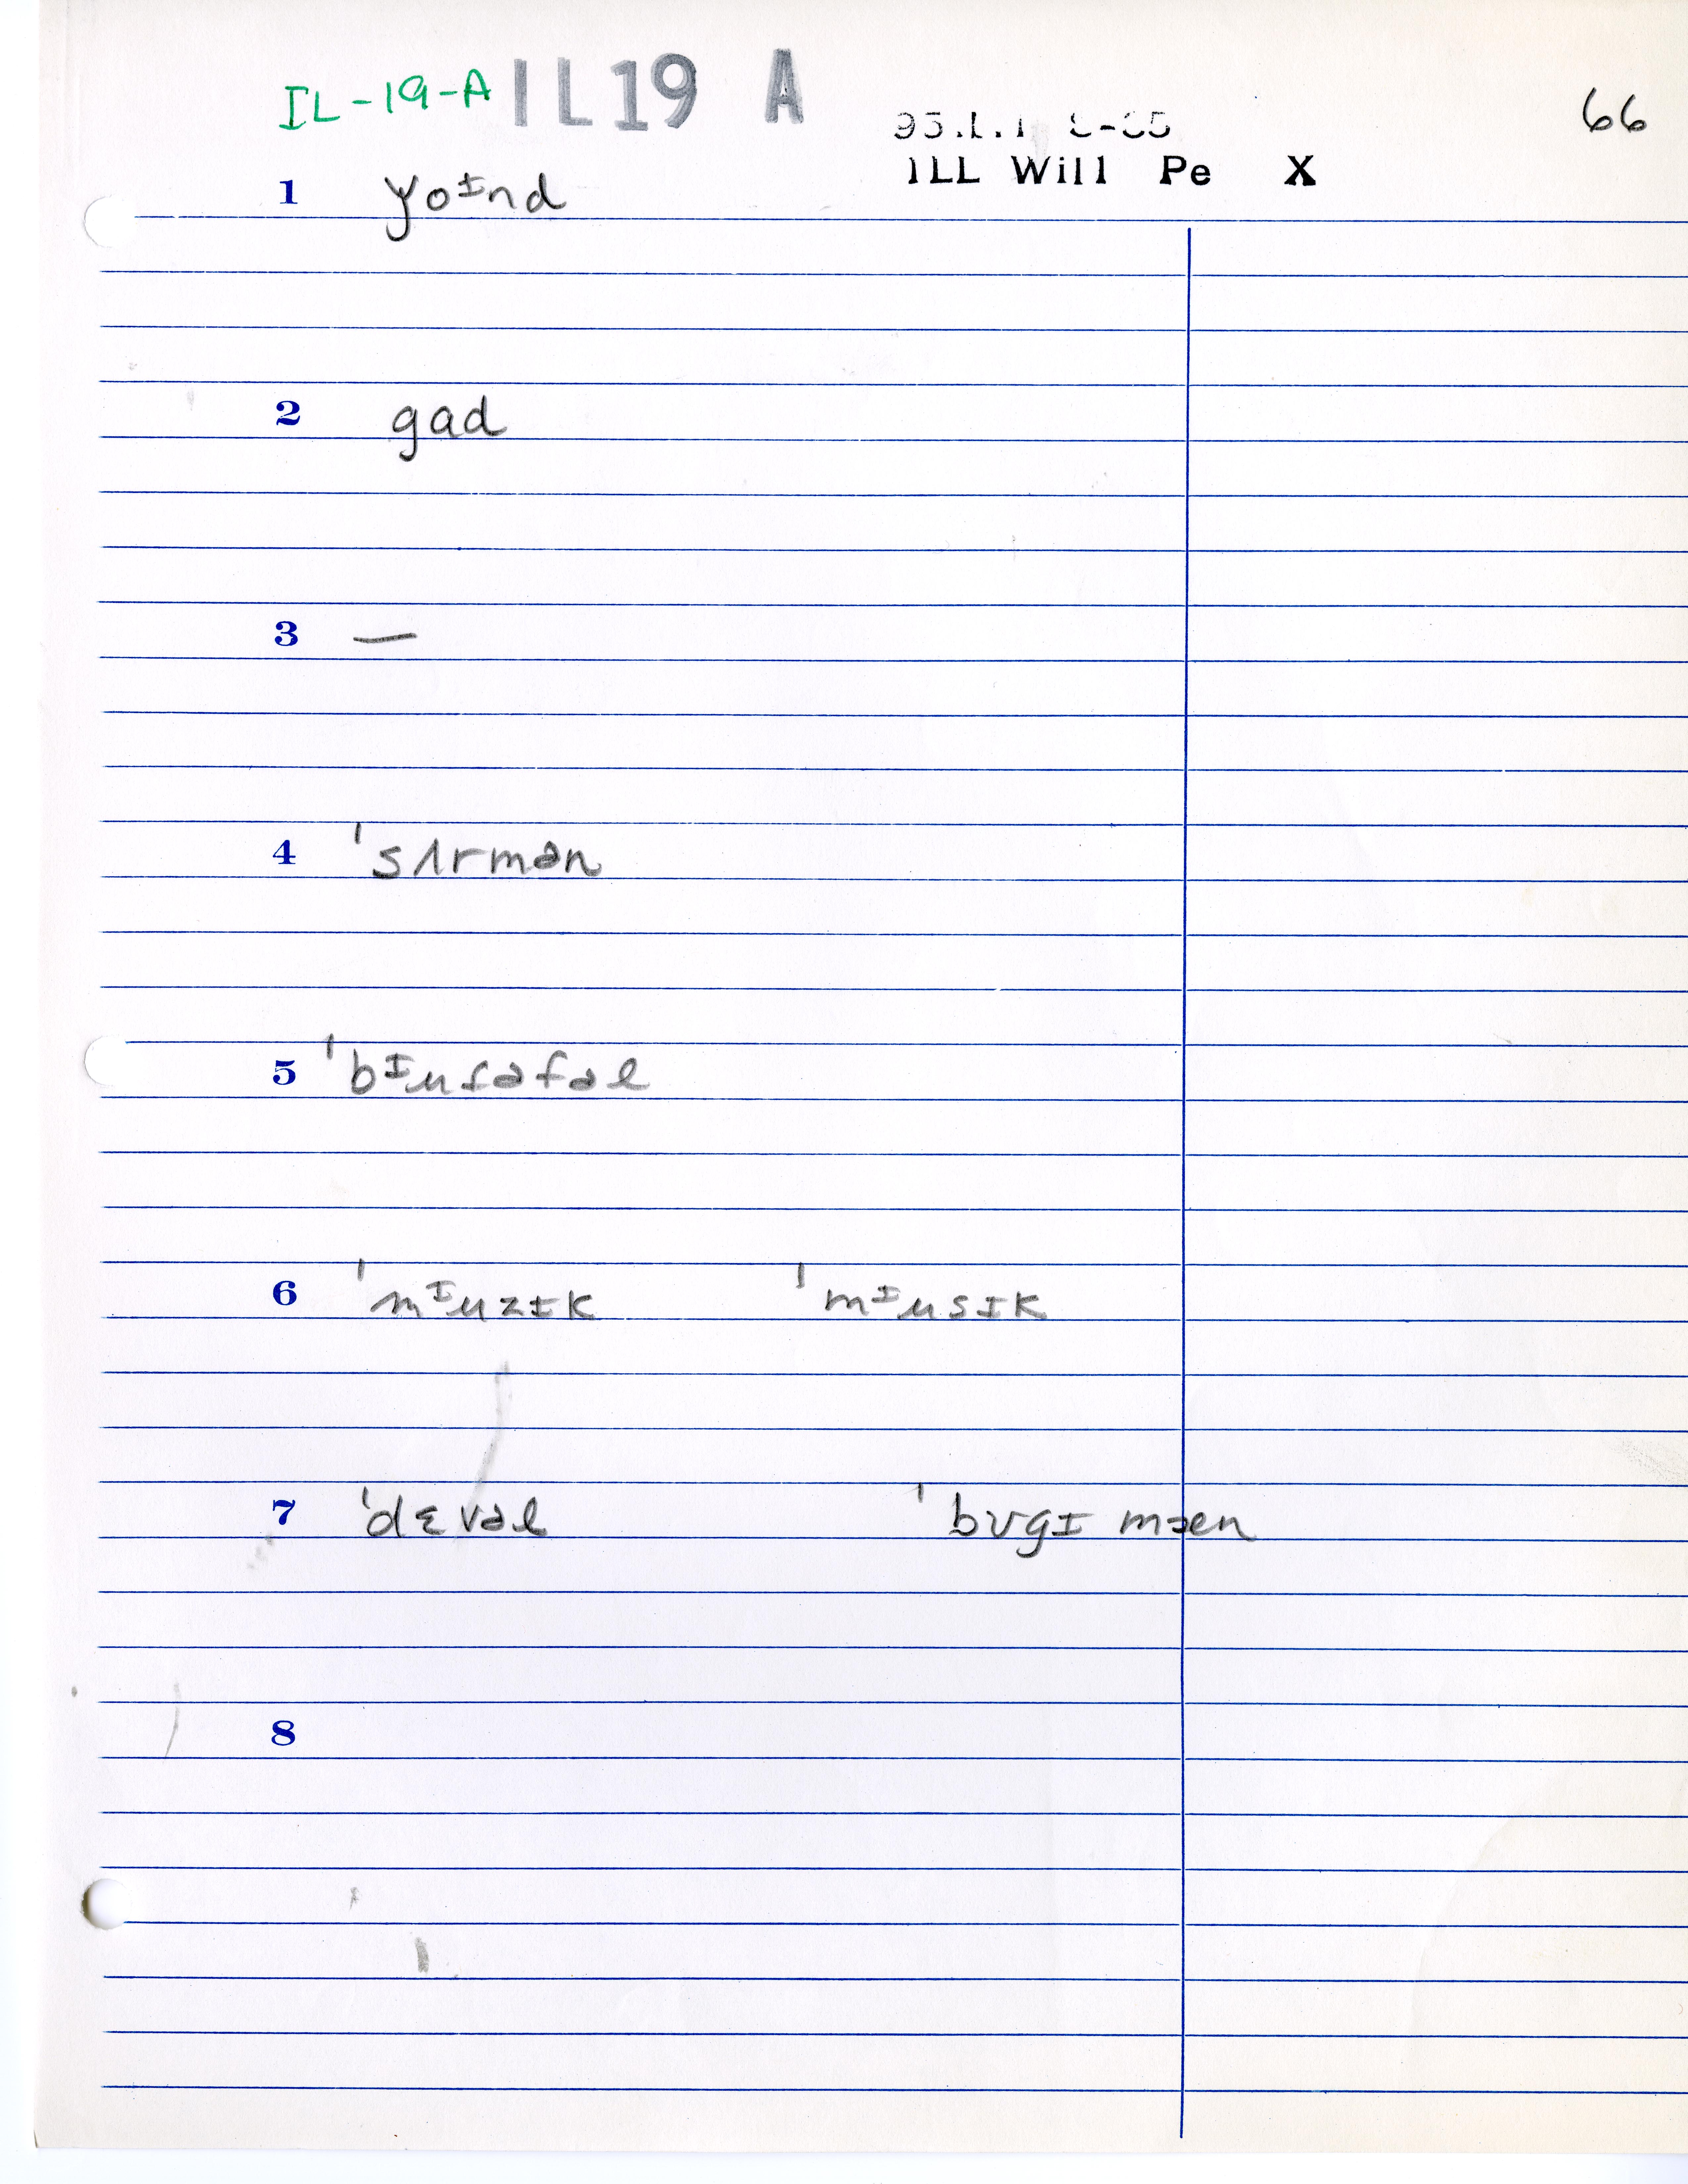 IL-19-A IL19 A
66
ILL Will Pe X
1 ɏoᶦnd
2 gad
3 —
4 ˈsʌrmən
5 ˈbᶦufəfəl
6 ˈmᶦuzɪk ˈmᶦusɪk
7 ˈdɛvəl ˈbʊgɪ mæn
8